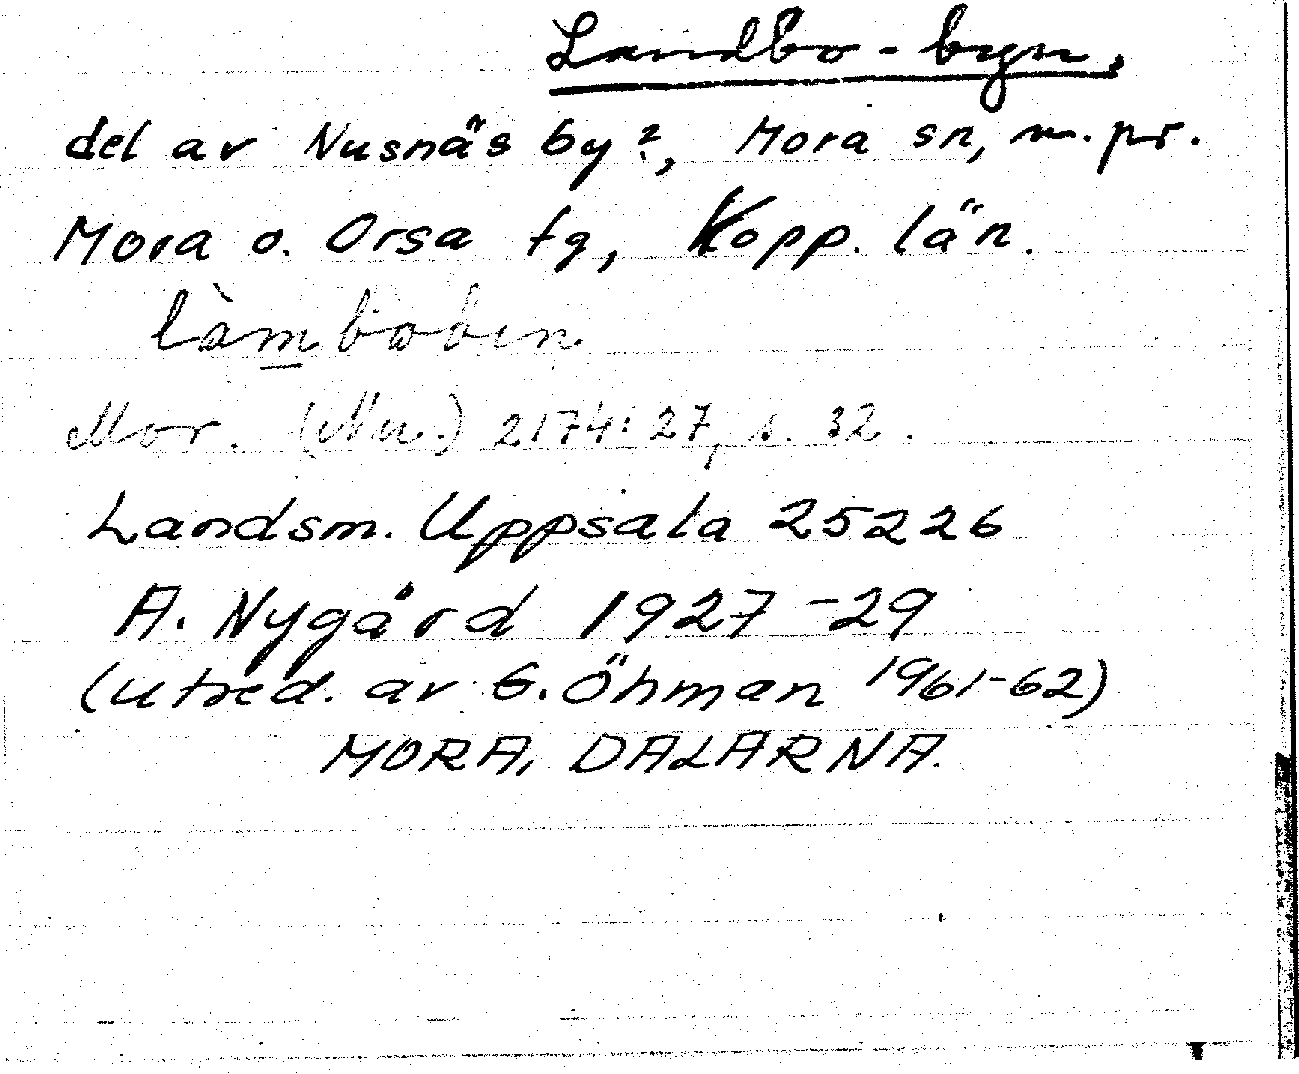 Landbo-byn,
del av Nusnäs by?, Mora sn, m.pr.
Mora o. Orsa tg, Kopp. län.
làmbobin
Mor. (Nu.) 2174:27, s. 32.
Landsm. Uppsala 25226
A. Nygård 1927-29
(utred. av G. Öhman 1961-62)
MORA, DALARNA.